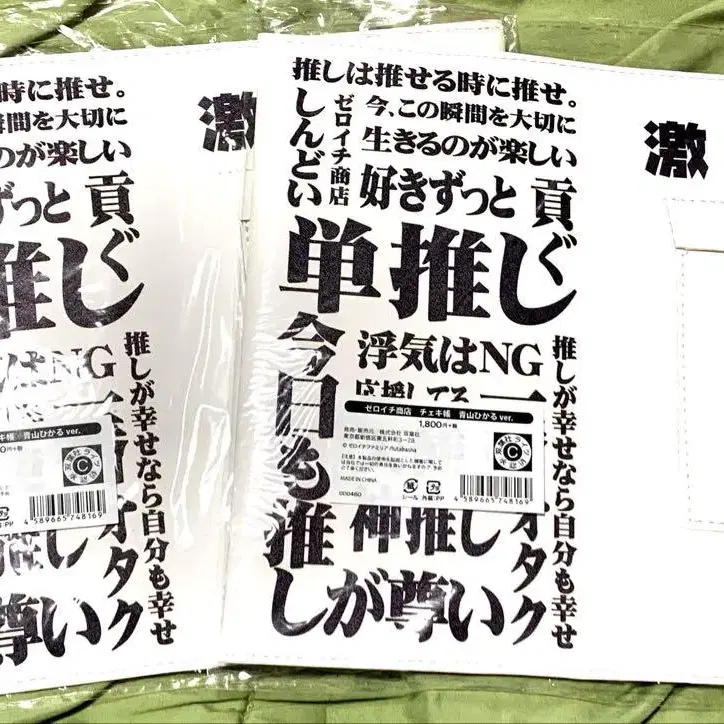 時に推せ。
瞬間を大切に
のが楽しい
ずっと
貢ぐ
推し
はNG
推しが幸せなら自分も幸せ
青山ひかる ver.
4589665748169
オタク
推し
尊い
激
推しは推せる時に推せ。
しんどい
ゼロイチ商店
今、この瞬間を大切に
生きるのが楽しい
好きずっと
貢ぐ
単推し
今日も推しが尊い
浮気はNG
応援してる
推しが幸せなら自分も幸せ
ゼロイチ商店 チェキ帳 青山ひかる ver.
1,800円+税
発売・販売元/株式会社 双葉社
東京都新宿区東五軒町3-28
© ゼロイチファミリア /futabasha
MADE IN CHINA
000460
シール 外装:PP
双葉社ライツ
C
4589665748169
神推し
オタク
激